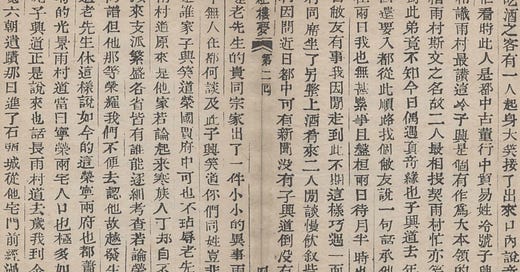 吃酒之客有一人起身大笑接了出來口內說
看時此人是都中古董行中貿易姓冷號子興
相識雨村最讚這冷子興是個有作爲大本領的
雨村斯文之名故二人最相投契雨村忙亦笑
到此弟竟不知今日偶遇真奇緣也子興道去年
還要入都從此順路找個敝友說一句話承
兩日我也無甚緊事且盤桓兩日待月半時
敝友有事我因閒走到此不期這樣巧遇一面
村同席坐了另整上酒肴來二人閒談慢飲敘些
村因問近日都中可有新聞沒有子興道倒沒
樓夢 第二回 四
老先生的貴同宗家出了一件小小的異事雨
無人在都何談及此子興笑道你們同姓豈非
誰家子興笑道榮國賈府中可也不玷辱老先
村道原來是他家若論起來寒族人丁却自不
來支派繁盛各省皆有誰能逐細考查若論榮
譜但他那等榮耀我們不便去認他故越發生
老先生休這樣說如今的這榮寧兩府也都蕭
的光景雨村道當日寧榮兩宅人口也極多如
子興道正是說來也話長雨村道去歲我到金
六朝遺蹟那日進了石頭城從他宅門前經過